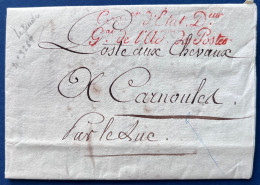 Cer. d'Etat Dteur
Gal. de l'Adon. des Postes
Poste aux Chevaux
A Carnoules
Par le Luc